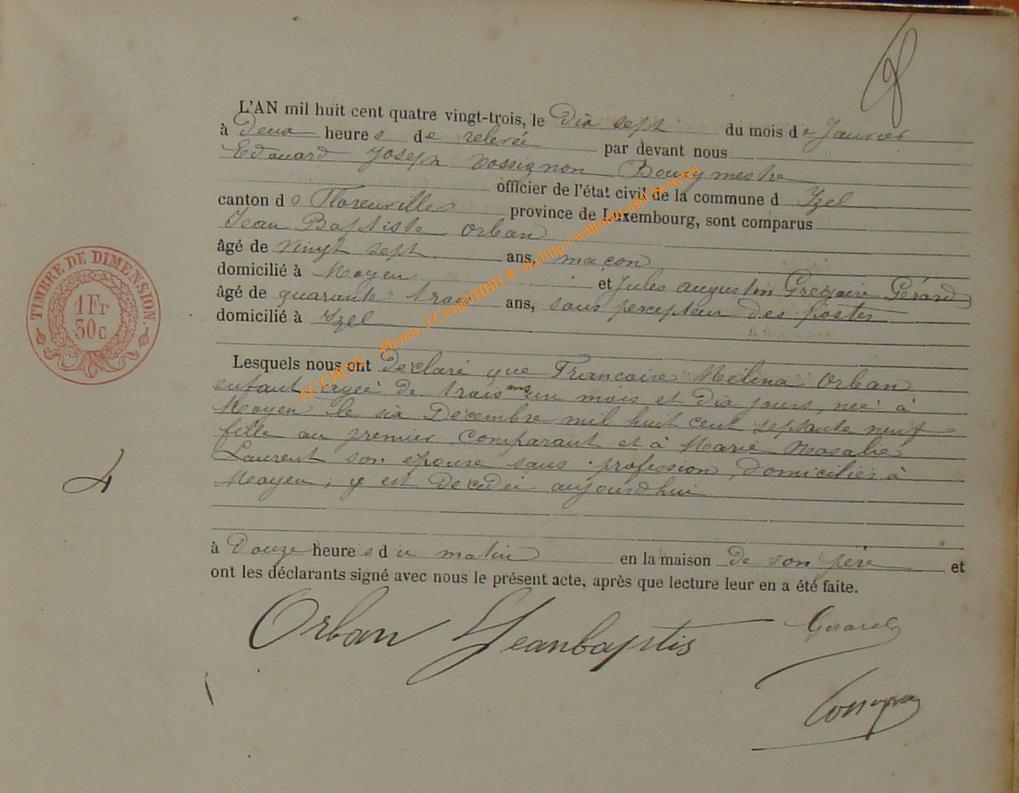 L'AN mil huit cent quatre vingt-trois, le Dix sept du mois de Janvier
à Deux heures de relevée par devant nous
Edouard Joseph Rossignon Bourgmestre
officier de l'état civil de la commune d Izel
canton de Florenville province de Luxembourg, sont comparus
Jean Baptiste Orban
âgé de vingt sept ans, maçon
domicilié à Moyen et Jules augustin Grégoire Gérard
âgé de quarante trois ans, sous percepteur des postes
domicilié à Izel
TIMBRE DE DIMENSION.
1Fr
30c
Lesquels nous ont déclaré que Françoise Mélina Orban
enfant agée de trois ans un mois et dix jours, née à
Moyen le six Décembre mil huit cent septante neuf
fille au premier comparant et à Marie Rosalie
Laurent son épouse sans profession, domiciliés à
Moyen, y est décédée aujourd'hui
4
à Douze heures du matin en la maison de son père et
ont les déclarants signé avec nous le présent acte, après que lecture leur en a été faite.
Orban Jeanbaptis Gerard